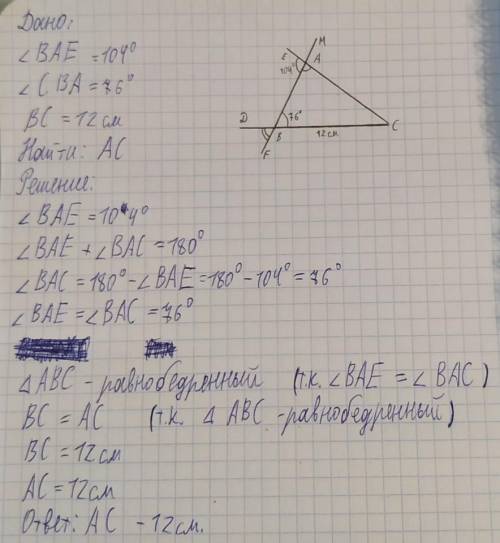 Дано:
∠BAE = 104°
∠CBA = 76°
BC = 12 см
Найти: AC
Решение:
∠BAE = 104°
∠BAE + ∠BAC = 180°
∠BAC = 180° - ∠BAE = 180° - 104° = 76°
∠BAE = ∠BAC = 76°
△ABC - равнобедренный (т.к. ∠BAE = ∠BAC)
BC = AC (т.к. △ABC - равнобедренный)
BC = 12 см
AC = 12 см
Ответ: AC - 12 см.
M
E
A
104°
D
76°
B
12 см
C
F